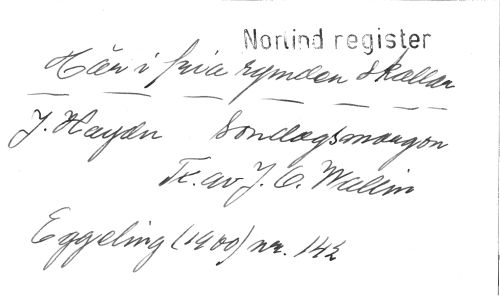 Norlind register
Här i fria rymden skallar
J. Haydn Söndagsmorgon
Tr. av J. O. Wallin
Eggeling (1900) nr. 142